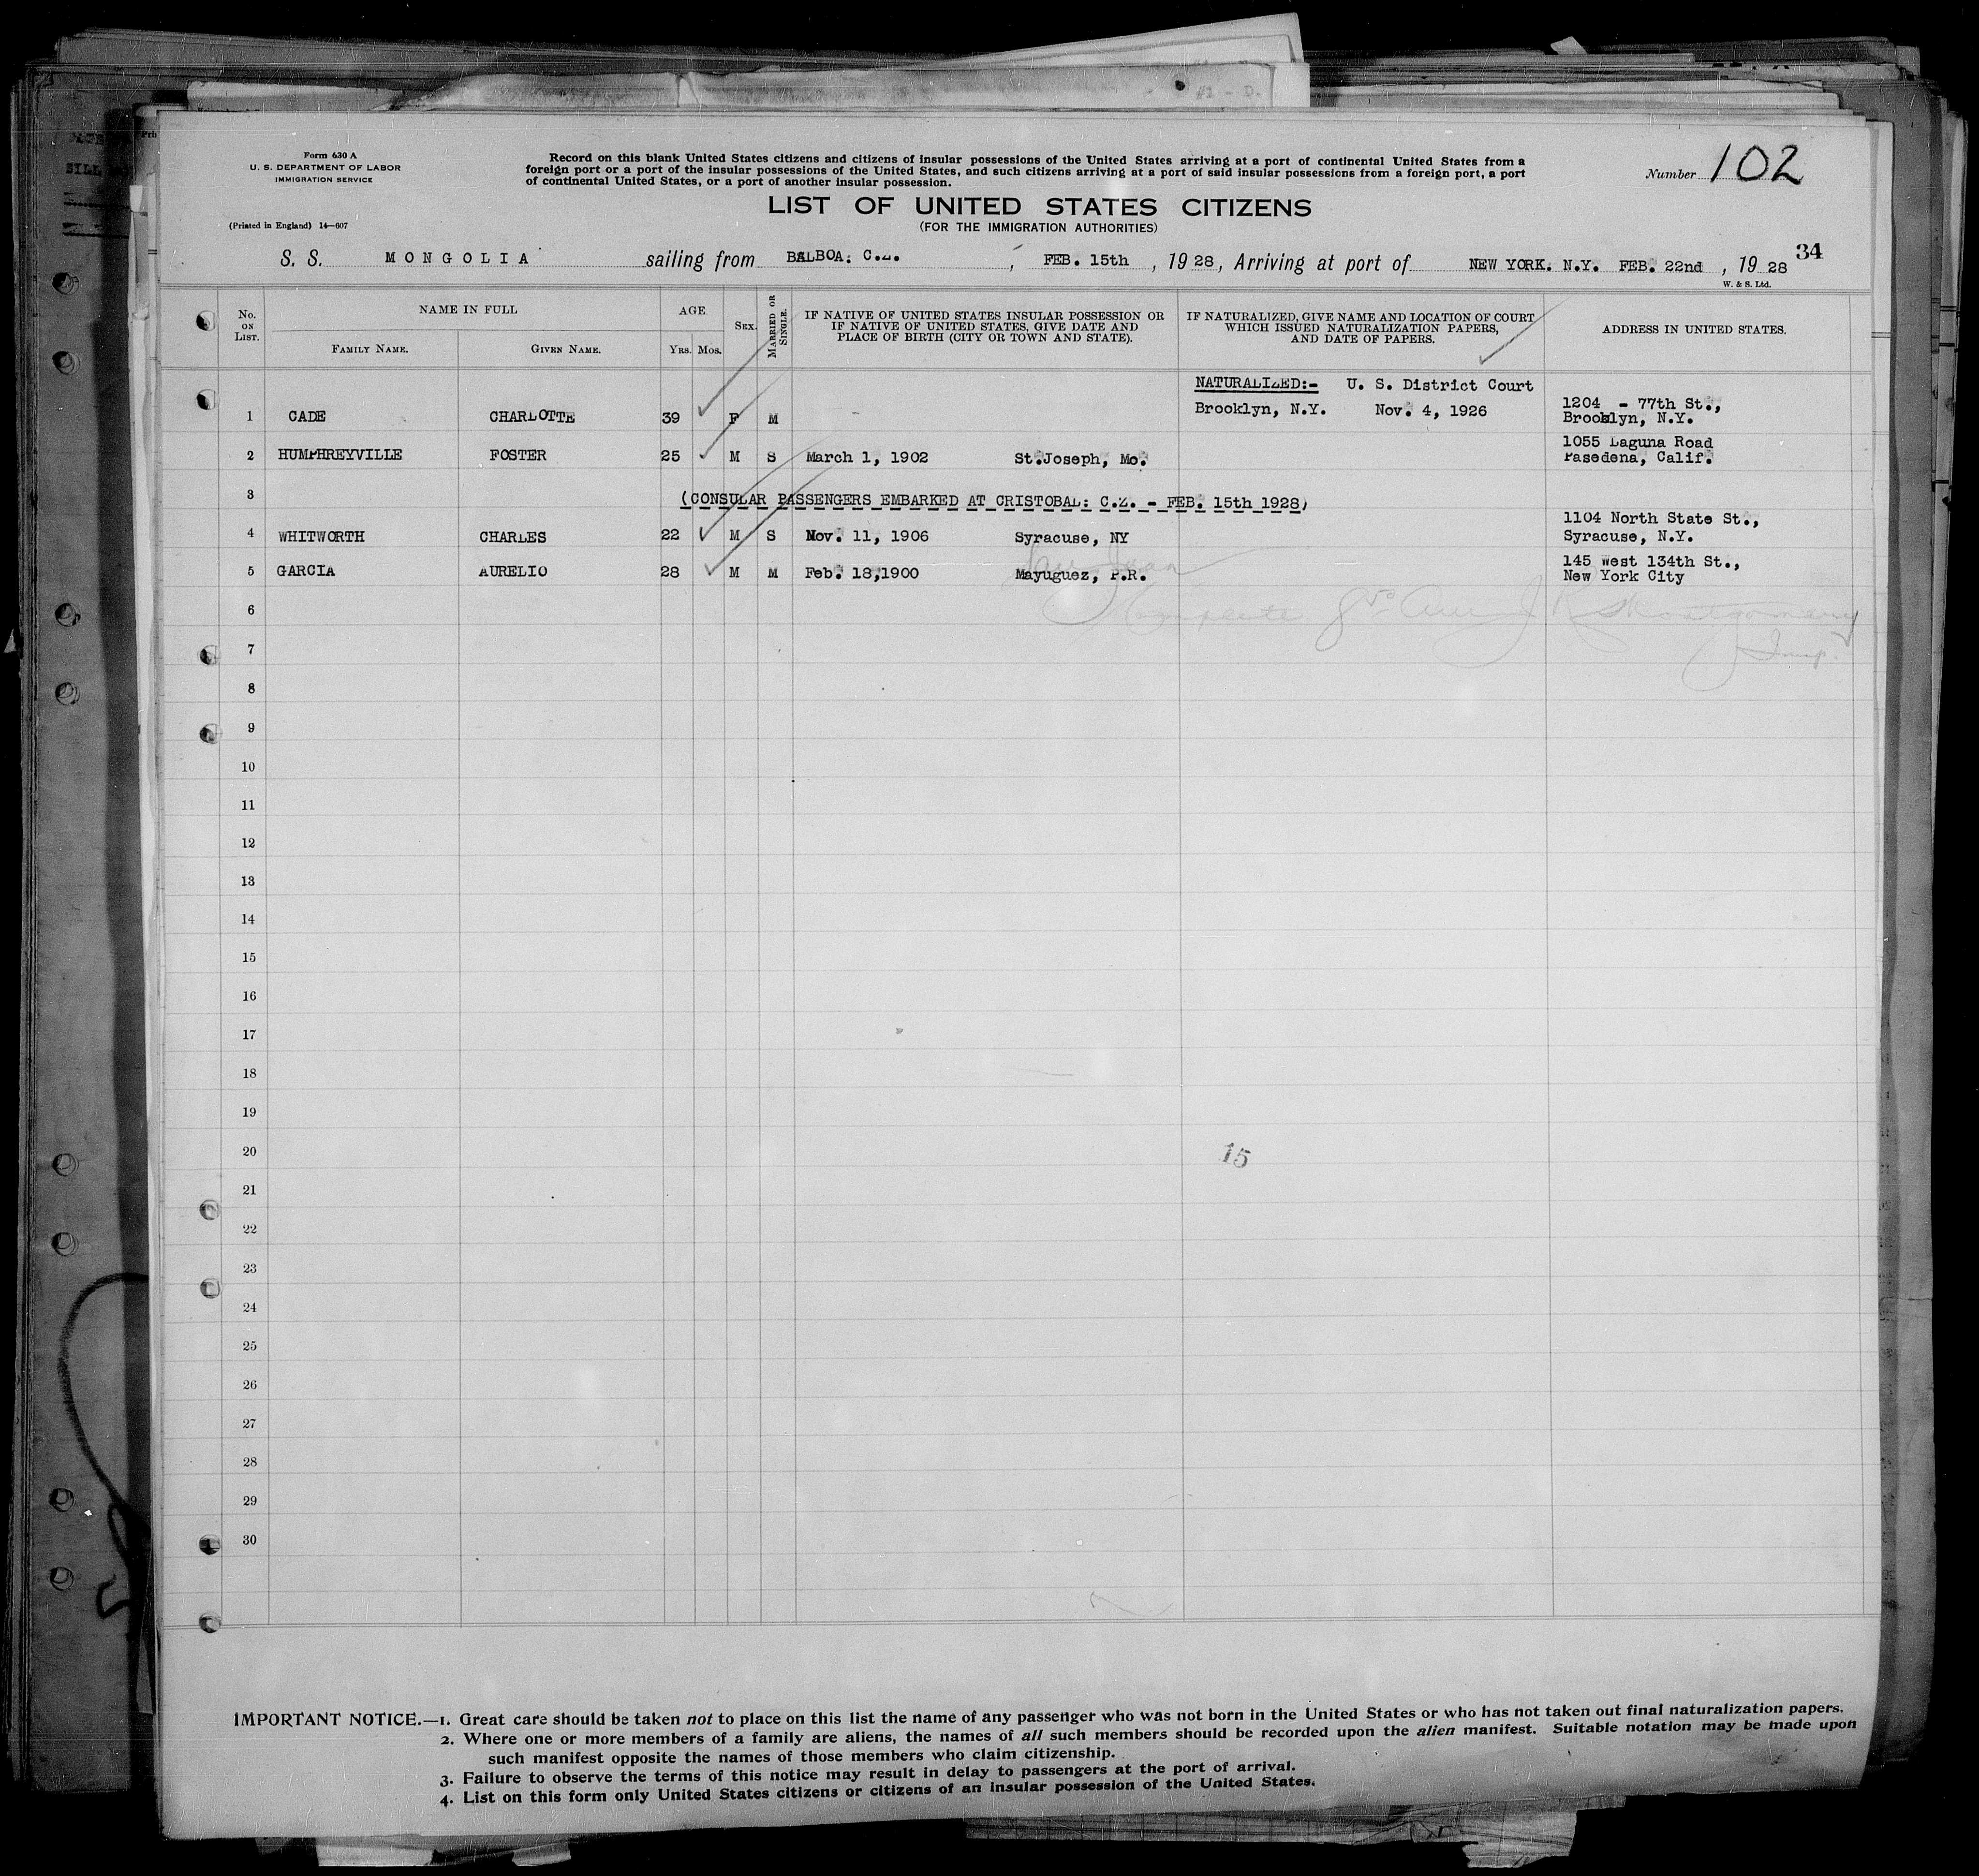 Form 630 A
U. S. DEPARTMENT OF LABOR
IMMIGRATION SERVICE
(Printed in England) 14—607
Record on this blank United States citizens and citizens of insular possessions of the United States arriving at a port of continental United States from a
foreign port or a port of the insular possessions of the United States, and such citizens arriving at a port of said insular possessions from a foreign port, a port
of continental United States, or a port of another insular possession.
Number 102
LIST OF UNITED STATES CITIZENS
(FOR THE IMMIGRATION AUTHORITIES)
34
S. S. MONGOLIA sailing from BALBOA: C.Z. , FEB. 15th , 1928, Arriving at port of NEW YORK. N.Y. FEB. 22nd , 1928
W. & S. Ltd.
No. ON LIST.
NAME IN FULL
FAMILY NAME.
GIVEN NAME.
AGE
YRS. MOS.
SEX.
MARRIED OR SINGLE.
IF NATIVE OF UNITED STATES INSULAR POSSESSION OR
IF NATIVE OF UNITED STATES, GIVE DATE AND
PLACE OF BIRTH (CITY OR TOWN AND STATE).
IF NATURALIZED, GIVE NAME AND LOCATION OF COURT
WHICH ISSUED NATURALIZATION PAPERS,
AND DATE OF PAPERS.
ADDRESS IN UNITED STATES.
NATURALIZED:- U. S. District Court
1 CADE CHARLOTTE 39 F M Brooklyn, N.Y. Nov. 4, 1926 1204 - 77th St.,
Brooklyn, N.Y.
1055 Laguna Road
2 HUMPHREYVILLE FOSTER 25 M S March 1, 1902 St.Joseph, Mo. Pasedena, Calif.
3 (CONSULAR PASSENGERS EMBARKED AT CRISTOBAL: C.Z. - FEB. 15th 1928)
1104 North State St.,
4 WHITWORTH CHARLES 22 M S Nov. 11, 1906 Syracuse, NY Syracuse, N.Y.
145 west 134th St.,
5 GARCIA AURELIO 28 M M Feb. 18,1900 Mayuguez, P.R. New York City
San Juan
6 Complete J R Montgomery
7 Insp.
8
9
10
11
12
13
14
15
16
17
18
19
20 15
21
22
23
24
25
26
27
28
29
30
IMPORTANT NOTICE.—1. Great care should be taken not to place on this list the name of any passenger who was not born in the United States or who has not taken out final naturalization papers.
2. Where one or more members of a family are aliens, the names of all such members should be recorded upon the alien manifest. Suitable notation may be made upon
such manifest opposite the names of those members who claim citizenship.
3. Failure to observe the terms of this notice may result in delay to passengers at the port of arrival.
4. List on this form only United States citizens or citizens of an insular possession of the United States.